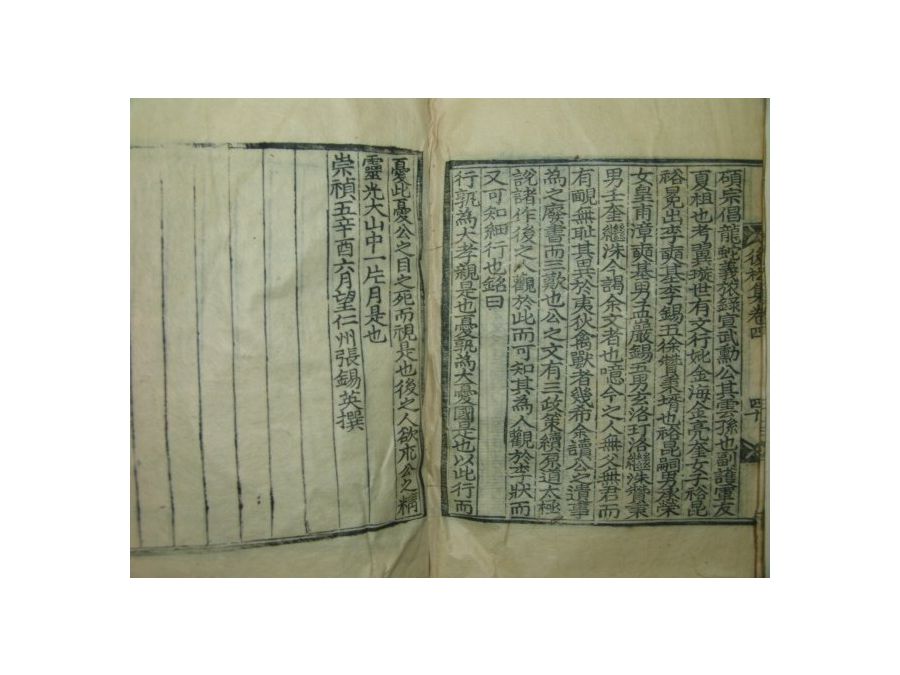 後松集卷四
四十
碩宗倡龍蛇義旅錄宣武勳公其雲孫也副護軍友
夏祖也考翼璇世有文行妣金海金亮奎女子裕昆
裕冕出李奭基李錫五徐贊秉壻也裕昆嗣男永榮
女皇甫漳奭基男孟嚴錫五男玄洛玎洛繼洙贊秉
男壬金繼洙今謁余文者也噫今之人無父無君而
有靦無耻其異於夷狄禽獸者幾希余讀公之遺事
為之廢書而三歎也公之文有三政策續原道太極
說諸作後之人觀於此而可知其為人觀於李狀而
又可知細行也銘曰
行孰為大孝親是也憂孰為大憂國是也以此行而
憂此憂公之目之死而視是也後之人欲求公之精
靈光大山中一片月是也
崇禎五辛酉六月望仁州張錫英撰